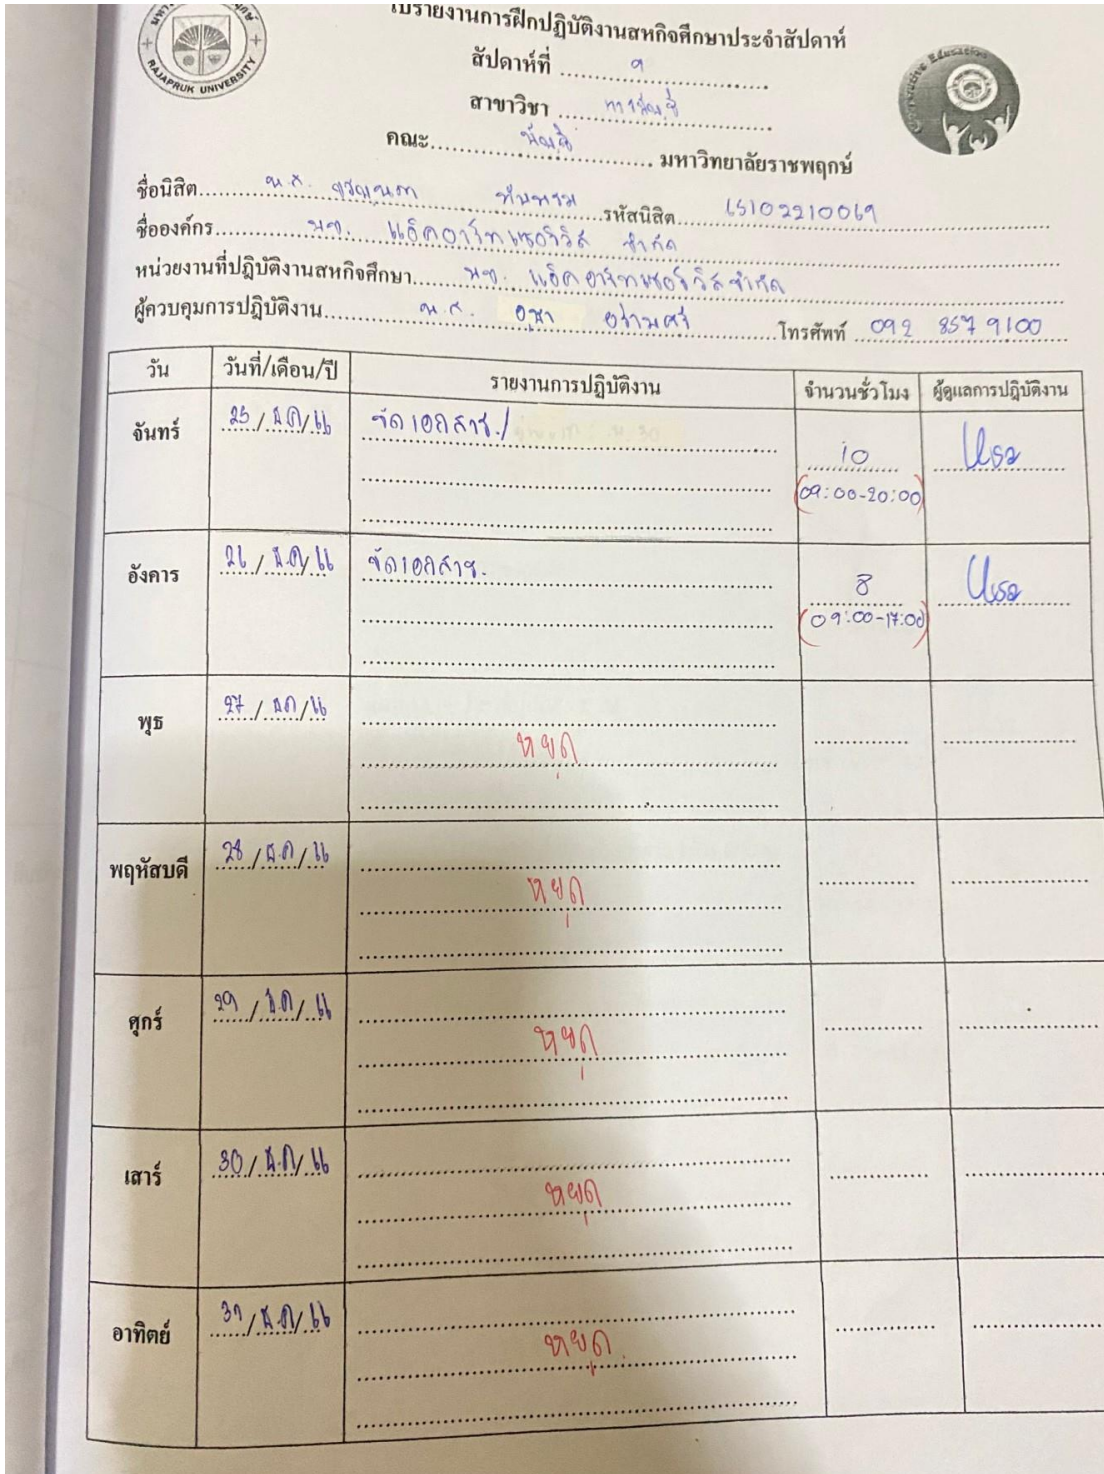 RAJAPRUK UNIVERSITY
Cooperative Education
ใบรายงานการฝึกปฏิบัติงานสหกิจศึกษาประจำสัปดาห์
สัปดาห์ที่ ๑
สาขาวิชา การบัญชี
คณะ บัญชี มหาวิทยาลัยราชพฤกษ์
ชื่อนิสิต น.ส. รหัสนิสิต 65102210069
ชื่อองค์กร บจ. จำกัด
หน่วยงานที่ปฏิบัติงานสหกิจศึกษา บจ. จำกัด
ผู้ควบคุมการปฏิบัติงาน น.ส. อุษา โทรศัพท์ 092 857 9100
วัน วันที่/เดือน/ปี รายงานการปฏิบัติงาน จำนวนชั่วโมง ผู้ดูแลการปฏิบัติงาน
จันทร์ 25/ธ.ค/66 จัดเอกสาร./ 10
(09:00-20:00)
อังคาร 26/ธ.ค/66 จัดเอกสาร. 8
(09:00-17:00)
พุธ 27/ธ.ค/66
หยุด
พฤหัสบดี 28/ธ.ค/66
หยุด
ศุกร์ 29/ธ.ค/66
หยุด
เสาร์ 30/ธ.ค/66
หยุด
อาทิตย์ 31/ธ.ค/66
หยุด.